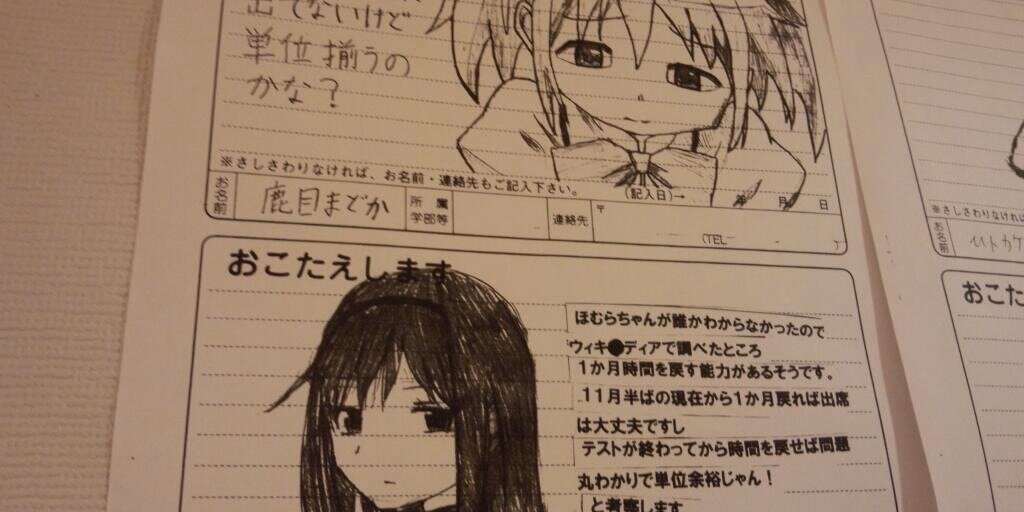 出てないけど
単位揃うの
かな？
※さしさわりなければ、お名前・連絡先もご記入下さい。
(記入日)→ 年 月 日
お名前 鹿目まどか 所属学部等 連絡先 〒
(TEL )
おこたえします
ほむらちゃんが誰かわからなかったので
ウィキ●ディアで調べたところ
1か月時間を戻す能力があるそうです。
11月半ばの現在から1か月戻れば出席
は大丈夫ですし
テストが終わってから時間を戻せば問題
丸わかりで単位余裕じゃん！
と考察します
※さしさわりなければ
お名前
おこた